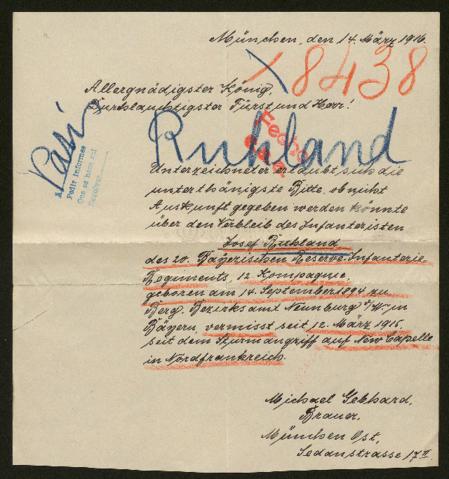 München, den 14. März 1916.
18438
Allergnädigster König,
Durchlauchtigster Fürst und Herr!
Ruhland
Unterzeichneter erlaubt sich die
unterthänigste Bitte, ob nicht
Auskunft gegeben werden könnte
über den Verbleib des Infanteristen
Josef Ruhland
des 20. Bayerischen Reserve-Infanterie
Regiments, 12. Kompagnie,
geboren am 14. September 1894 zu
Berg, Bezirksamt Neunburg v/W. in
Bayern, vermisst seit 12. März 1915,
seit dem Sturmangriff auf New Capelle
in Nordfrankreich.
Michael Gebhard,
Brauer,
München Ost,
Sedanstrasse 17 II